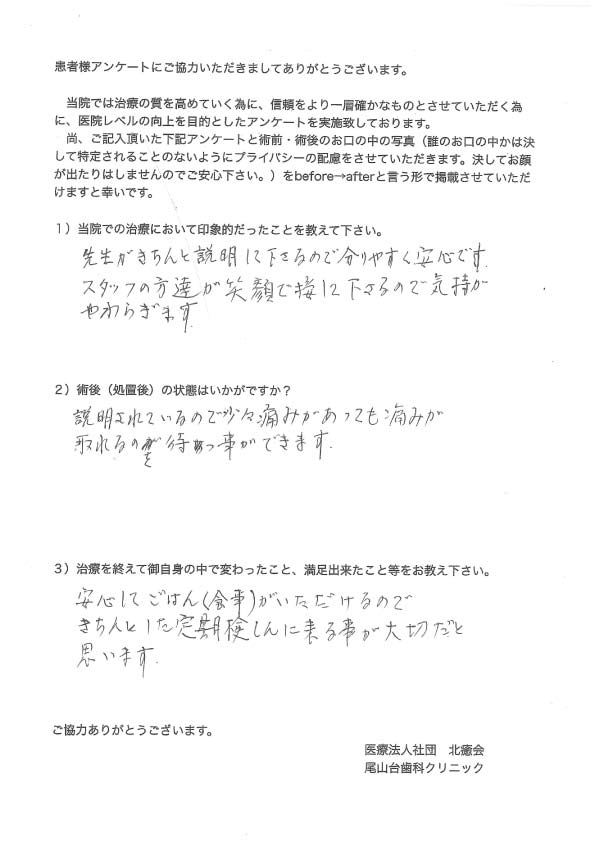 患者様アンケートにご協力いただきましてありがとうございます。
当院では治療の質を高めていく為に、信頼をより一層確かなものとさせていただく為
に、医院レベルの向上を目的としたアンケートを実施致しております。
尚、ご記入頂いた下記アンケートと術前・術後のお口の中の写真（誰のお口の中かは決
して特定されることのないようにプライバシーの配慮をさせていただきます。決してお顔
が出たりはしませんのでご安心下さい。）をbefore→afterと言う形で掲載させていただ
けますと幸いです。
１）当院での治療において印象的だったことを教えて下さい。
先生がきちんと説明して下さるので分りやすく安心です.
スタッフの方達が笑顔で接して下さるので気持が
やわらぎます.
２）術後（処置後）の状態はいかがですか？
説明されているので少々痛みがあっても痛みが
取れるのを待つ事ができます.
３）治療を終えて御自身の中で変わったこと、満足出来たこと等をお教え下さい。
安心してごはん(食事)がいただけるので
きちんとした定期検しんに来る事が大切だと
思います.
ご協力ありがとうございます。
医療法人社団　北癒会
尾山台歯科クリニック